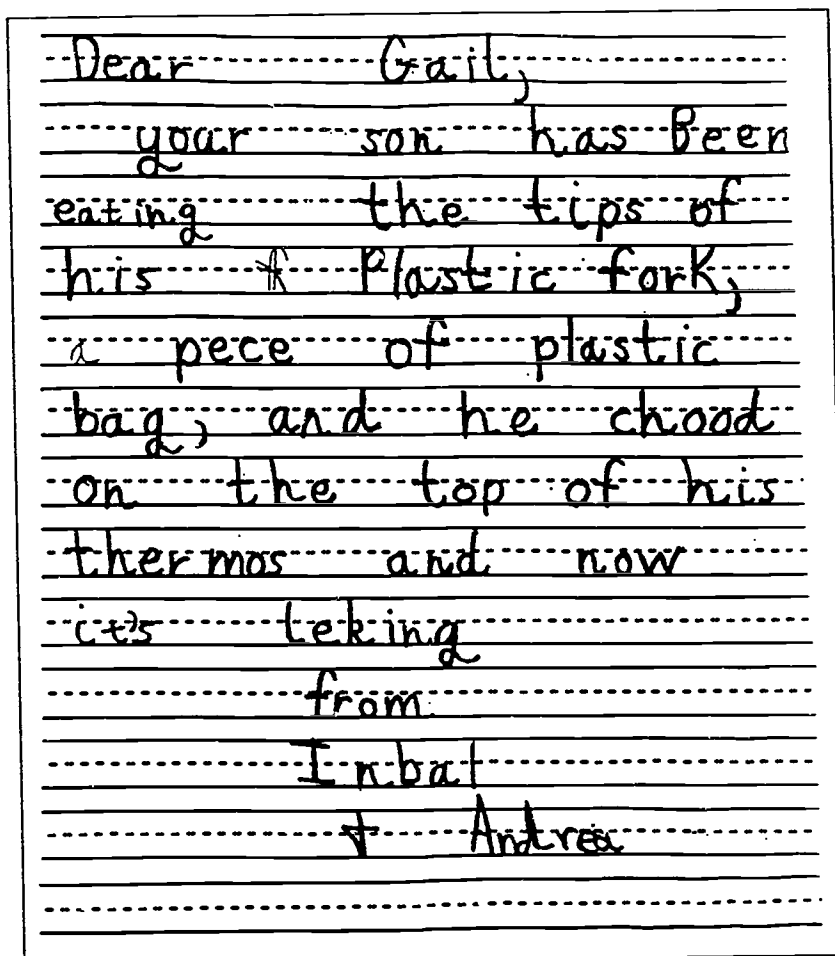 Dear Gail,
your son has Been
eating the tips of
his Plastic fork,
a pece of plastic
bag, and he chood
on the top of his
thermos and now
it's leking
from
Inbal
+ Andrea